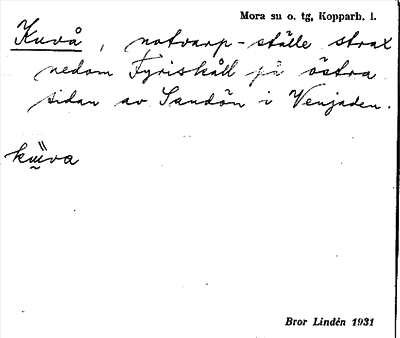 Mora su o. tg, Kopparb. l.
Kuvå, notvarp-ställe strax
nedom Fyriskåll på östra
sidan av Sandön i Venjaden.
Bror Lindén 1931